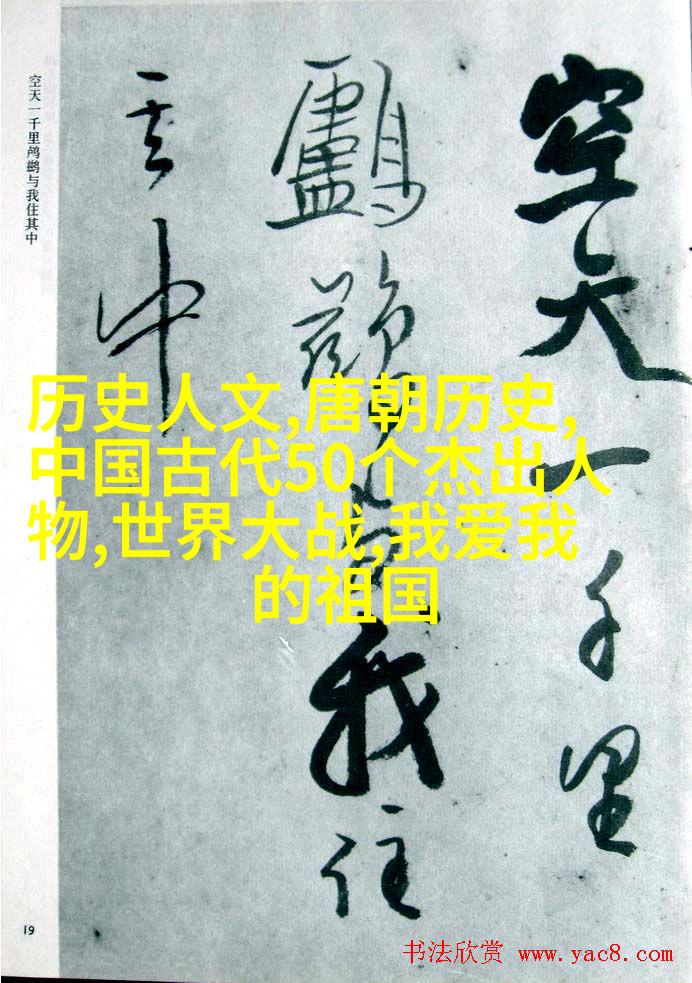 空天一千里
鸕鷀我住
其中
空天一千里鸬鹚与我住其中
历史人文,唐朝历史,
中国古代50个杰出人
物,世界大战,我爱我
的祖国
19
书法欣赏 www.yac8.com